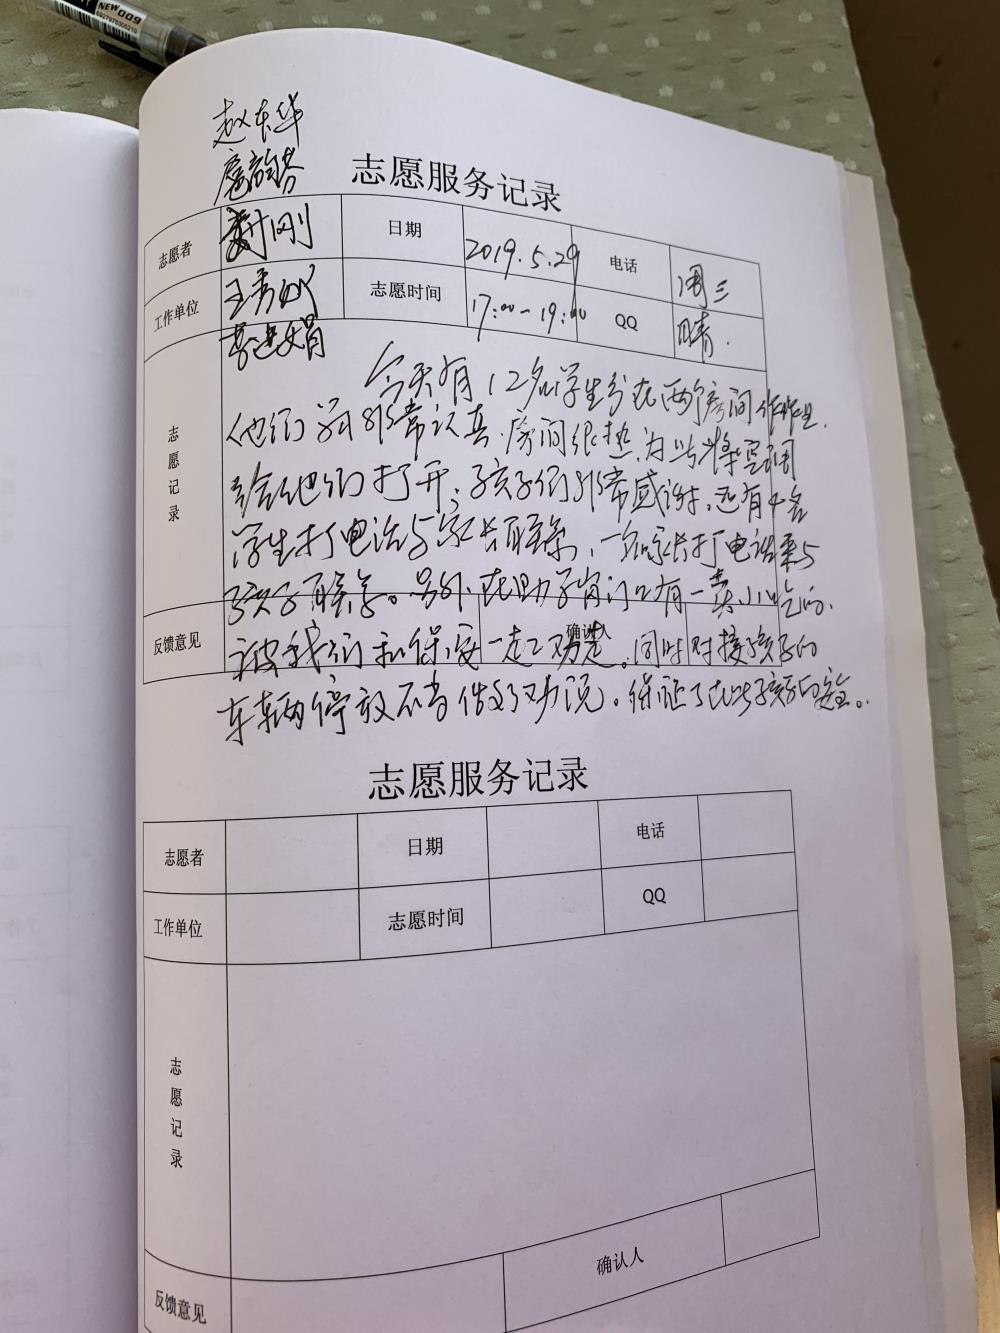 NEW009
赵东华
志愿服务记录
志愿者 刚 日期 2019.5.29 电话 周三
工作单位 王秀 志愿时间 17:00-19:00 QQ 晴.
李建娟
志愿记录
今天有12名学生分在两个房间作作业.
他们写非常认真.房间很热,为此将空调
给他们打开,孩子们非常感谢,还有4名
学生打电话与家长联系,一名家长打电话来与
孩子联系。另外,在助子岗门口有一卖小吃的.
反馈意见 确认人
被我们和保安一起劝走。同时对接孩子的
车辆停放不当做了劝说。保证了在此孩子的安全。
志愿服务记录
志愿者 日期 电话
工作单位 志愿时间 QQ
志愿记录
反馈意见 确认人